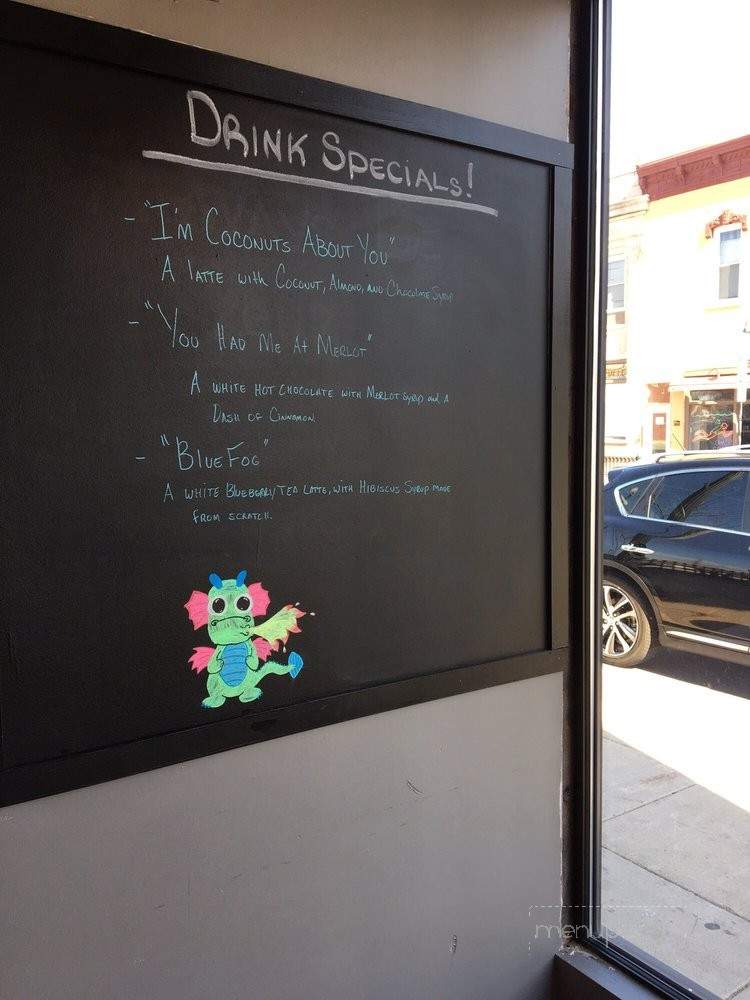 DRINK SPECIALS!
- "I'M COCONUTS ABOUT YOU"
A LATTE WITH COCONUT, ALMOND, AND CHOCOLATE SYRUP
- "YOU HAD ME AT MERLOT"
A WHITE HOT CHOCOLATE WITH MERLOT SYRUP AND A
DASH OF CINNAMON.
- "BLUE FOG"
A WHITE BLUEBERRY TEA LATTE, WITH HIBISCUS SYRUP MADE
FROM SCRATCH.
menup